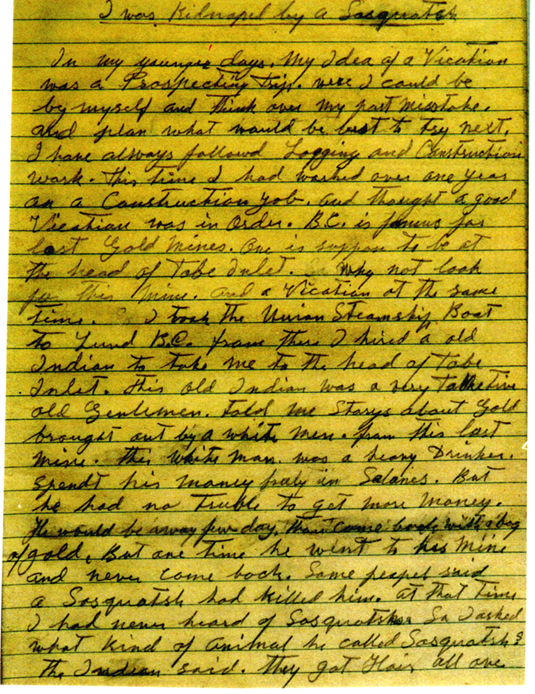 I was Kidnaped by a Sasquatsh
In my younger days. My Idea of a Vication
was a Prospecting Trip. were I could be
by myself and think over my past misstake.
and plan what would be best to try next.
I have always followd Logging and Construction
work. This time I had worked over one year
on a Construction Job. and thought a good
Vication was in Order. B.C. is famus for
lost Gold Mines. One is suppose to be at
the head of Tobe Inlet. why not look
for this Mine. and a Vication at the same
time. I took the Union Steamship Boat
to Lund B.C. from there I hired a old
Indian to take me to the head of Tobe
Inlet. This old Indian was a very talketive
old Gentlemen. told me Storys about Gold
brought out by a white men. from this lost
mine. this white man was a heavy Drinker.
spendt his money freely in Salones. But
he had no Truble to get more Money.
He would be away few day, then come back with a bag
of gold. But one time he went to his Mine
and never come back. Some peopel said
a Sasquatsh had killed him. at that time
I had never heard of Sasquatsh. So I asked
what kind of animal he called Sasquatsh?
the Indian said. they got Hair all over